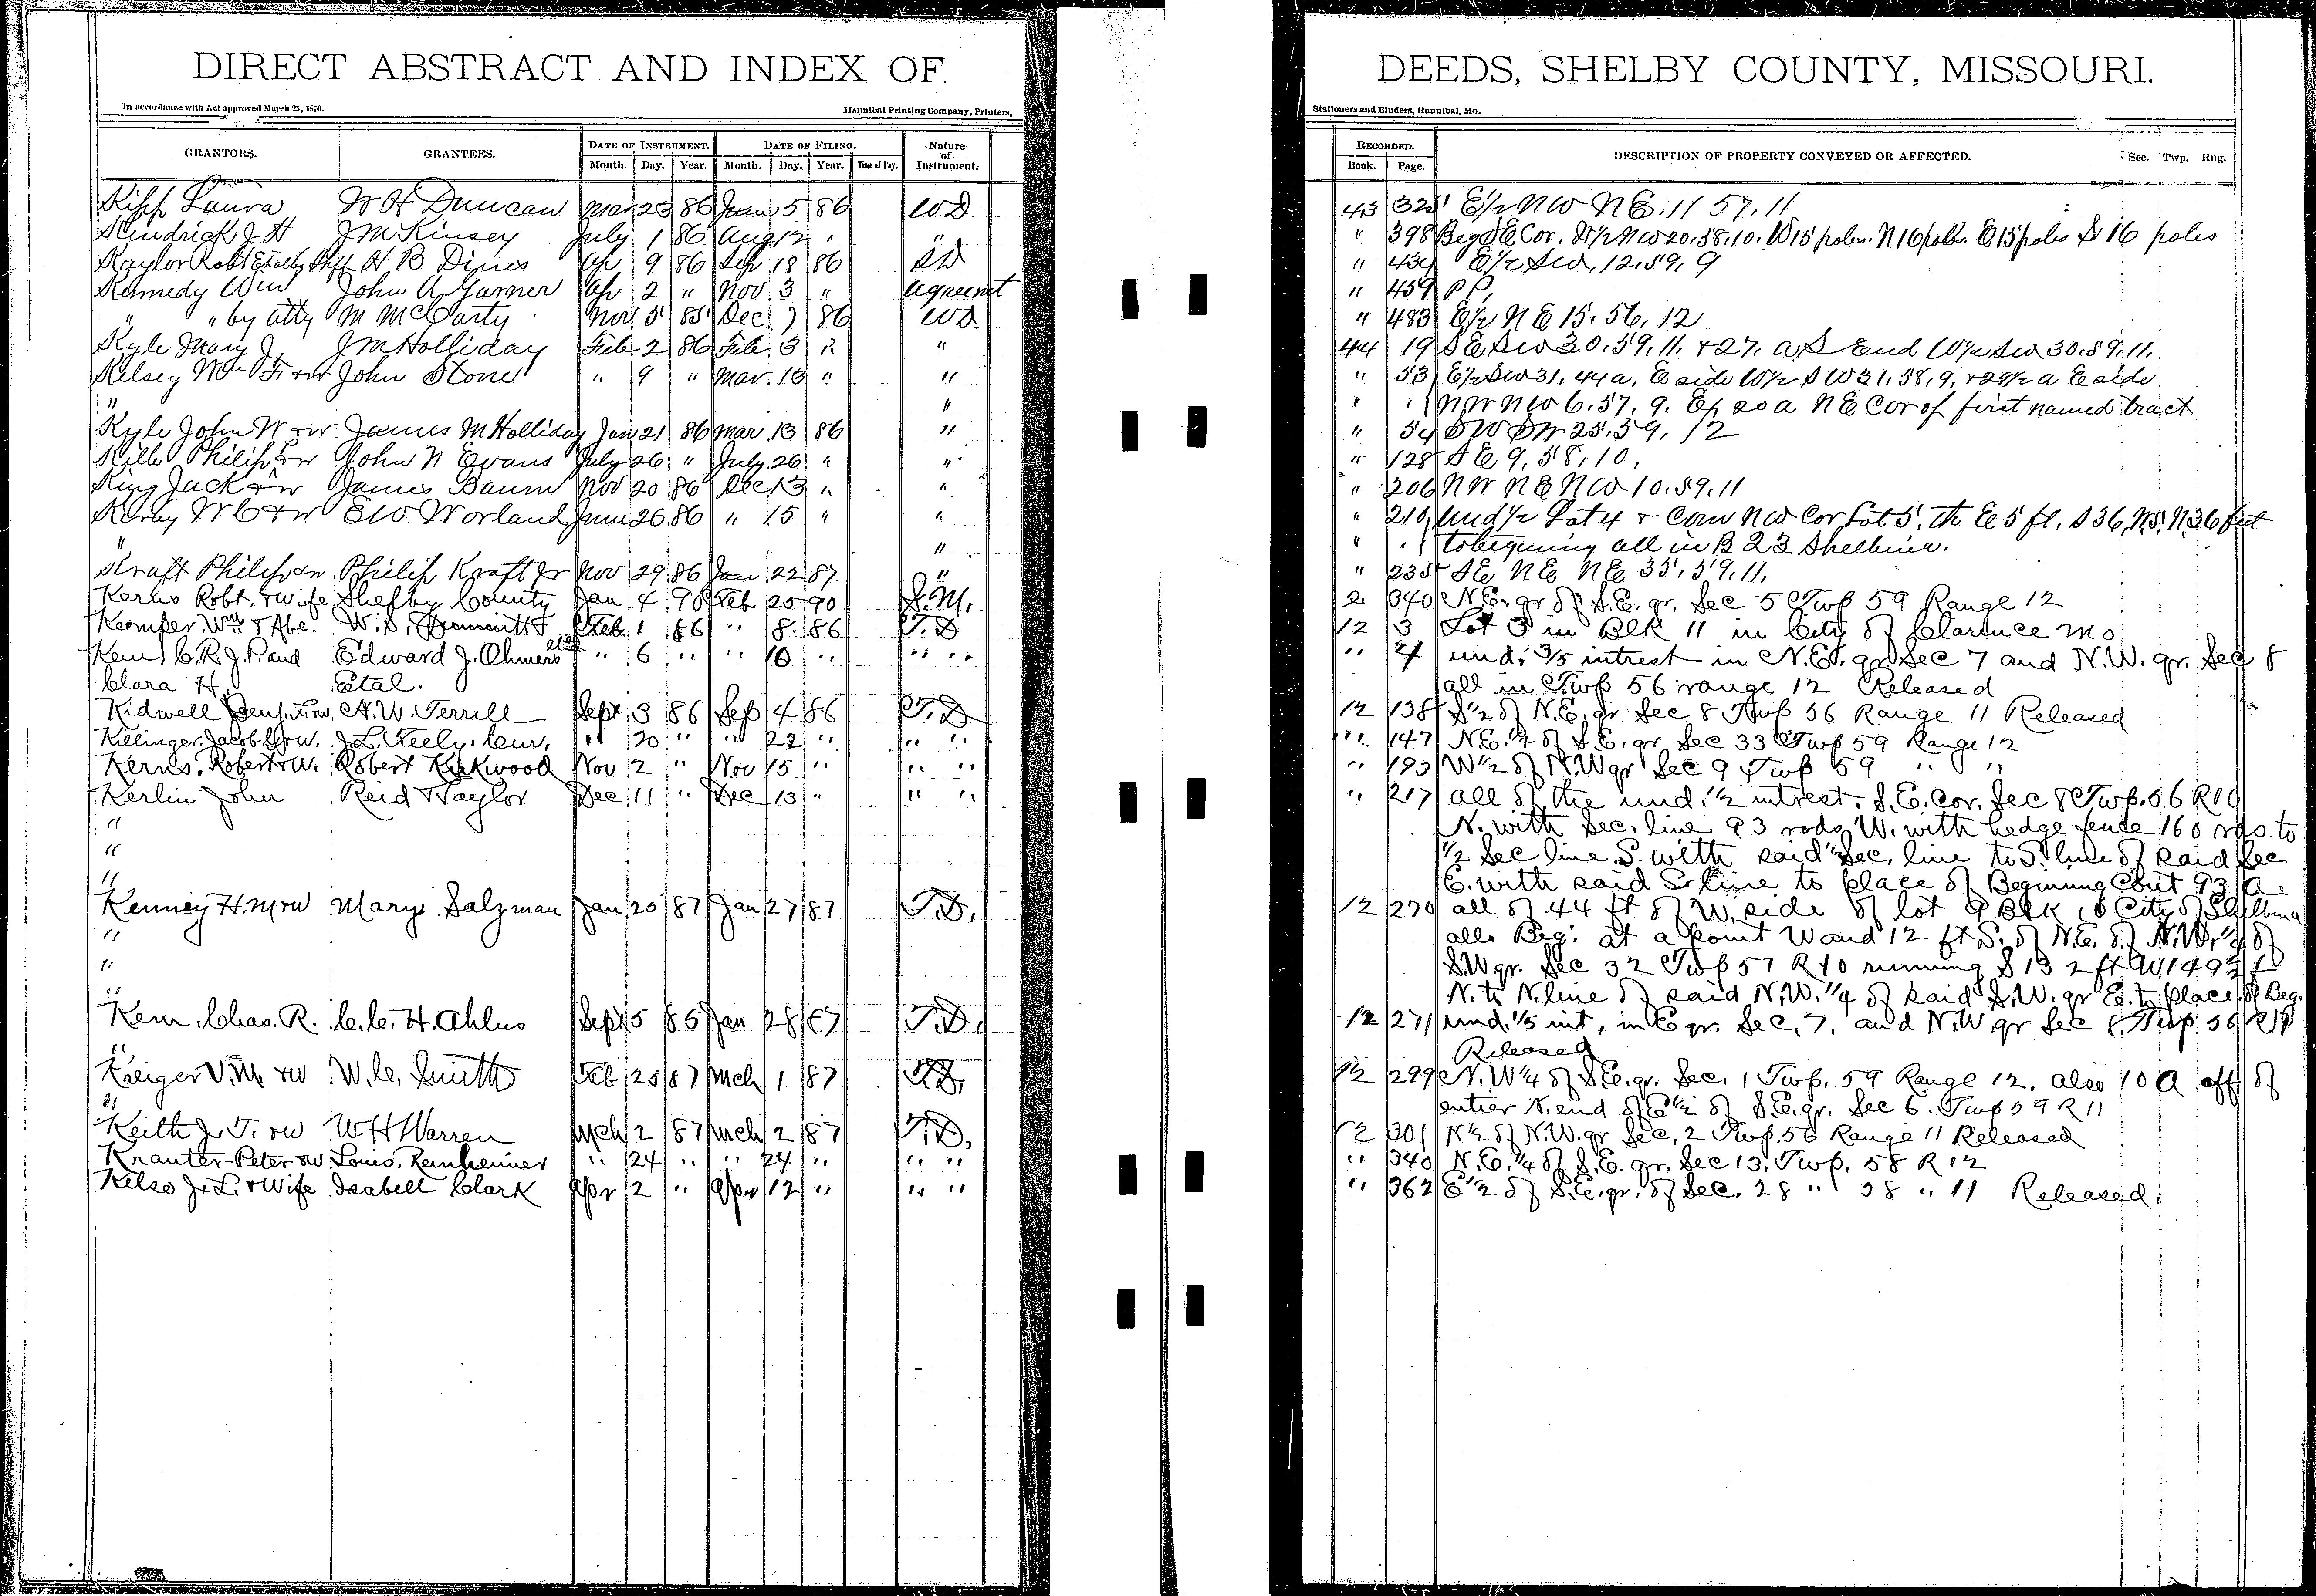 DIRECT ABSTRACT AND INDEX OF
In accordance with Act approved March 25, 1870. Hannibal Printing Company, Printers,
GRANTORS. GRANTEES. DATE OF INSTRUMENT. DATE OF FILING. Nature of Instrument.
Month. Day. Year. Month. Day. Year. Time of Day.
Kipp Laura W H Duncan Mar 23 86 June 5 86 WD
Kendrick J H J M Kinsey July 1 86 Aug 12 " "
Kaylor Robt Shff H B Dines Ap 9 86 Sep 18 86 SD
Kennedy Wm John A Garner Ap 2 " Nov 3 " Agreemt
" " by atty M McCarty Nov 5 85 Dec 7 86 WD
Kyle Mary J. J M Holliday Feb 2 86 Feb 3 " "
Kelsey Wm F + w John Stone " 9 " Mar 13 " "
" "
Kyle John W + w James M Holliday Jan 21 86 Mar 13 86 "
Kille Philip + w John N Evans July 26 " July 26 " "
King Jack + w James Baum Nov 20 86 Dec 13 " "
Kirby W C + w E W Worland June 26 86 " 15 " "
" "
Kraft Philip + w Philip Kraft Jr Nov 29 86 Jan 22 87 "
Kerns Robt. + wife Shelby County Jan 4 90 Feb 25 90 S.M.
Kemper, Wm + Abe. W. S. Feb 1 86 " 8 86 T.D
Kem C. R. J. P. and Edward J. Ohmer " 6 " " 10 " " "
Clara H. Etal.
Kidwell Benj. F. + w A. W. Terrell Sept 3 86 Sep 4 86 T.D
Killinger, Jacob + w. J. L. Neely. Cur. " 20 " " 22 " " "
Kerns, Robert + w. Robert Kirkwood Nov 2 " Nov 15 " " "
Kerlin John Reid Naylor Dec 11 " Dec 13 " " "
"
"
"
Kenney H. M + w Mary Salzman Jan 25 87 Jan 27 87 T.D.
"
"
"
Kem, Chas. R. C. C. H. Ahlus Sept 5 85 Jan 28 87 T.D.
"
Kreiger V. M. + w W. C. Smith Feb 25 87 Mch 1 87 T.D.
"
Keith J. T. + w W H Warren Mch 2 87 Mch 2 87 T.D.
Krauter Peter + w Louis. " 24 " " 24 " " "
Kelso J. L. + Wife Isabell Clark Apr 2 " Apr 12 " " "
DEEDS, SHELBY COUNTY, MISSOURI.
Stationers and Binders, Hannibal, Mo.
RECORDED. DESCRIPTION OF PROPERTY CONVEYED OR AFFECTED. Sec. Twp. Rng.
Book. Page.
43 325 E½ NW NE. 11 57. 11
" 398 Beg SE Cor. NW 20. 58. 10. W 15 poles. N 16 poles. E 15 poles S 16 poles
" 434 E½ SW. 12. 59. 9
" 459 P P.
" 483 E½ NE 15. 56. 12
44 19 SE SW 30. 59. 11. + 27. a S End W½ SW 30. 59. 11.
" 53 E½ SW 31. 44 a. E side W½ SW 31. 58. 9. + 29½ a E side
" " NW NW 6. 57. 9. Ex 20 a NE Cor of first named tract
" 54 SW SW 25. 59. 12
" 128 SE 9. 58. 10.
" 206 NW NE NW 10. 59. 11
" 210 und ½ Lot 4 + Com NW Cor Lot 5. th E 5 ft. S 36, W 5. N 36 feet
" " to begining all in B 23 Shelbina.
" 235 SE NE NE 35. 59. 11.
2 340 N.E. qr of S.E. qr. Sec 5 Twp 59 Range 12
12 3 Lot 3 in Blk 11 in City of Clarence Mo
" 4 und. 3/5 intrest in N.E. qr Sec 7 and N.W. qr. Sec 8
all in Twp 56 range 12 Released
12 138 S ½ of N.E. qr Sec 8 Twp 56 Range 11 Released
" 147 N.E. ¼ of S.E. qr Sec 33 Twp 59 Range 12
" 193 W ½ of N.W qr Sec 9 Twp 59 " "
" 217 all of the und. ½ intrest. S.E. Cor. Sec 8 Twp. 56 R 10
N. with Sec. line 93 rods W. with hedge fence 160 rds. to
½ Sec line S. with said ½ Sec. line to S. line of said Sec
E. with said S line to place of Begining Cont 93 a.
12 270 all of 44 ft of W. side of lot 9 Blk City of Shelbina
also Beg. at a point W and 12 ft S. of N.E. of N.W. ¼ of
S.W qr. Sec 32 Twp 57 R 10 running S 132 ft W 149½ ft
N. to N. line of said N.W. ¼ of said S.W. qr E. to place of Beg.
12 271 und. 1/5 int, in E qr. Sec, 7. and N.W qr Sec 8 Twp 56 R 12
Released
12 299 N.W ¼ of S.E. qr. Sec. 1 Twp. 59 Range 12. also 10 a off of
entier N. end of E ½ of S.E. qr. Sec 6. Twp 59 R 11
12 301 N ½ of N.W. qr Sec, 2 Twp. 56 Range 11 Released
" 340 N.E. ¼ of S.E. qr. Sec 13, Twp. 58 R 12
" 362 E ½ of S.E. qr. of Sec. 28 " 58 " 11 Released.